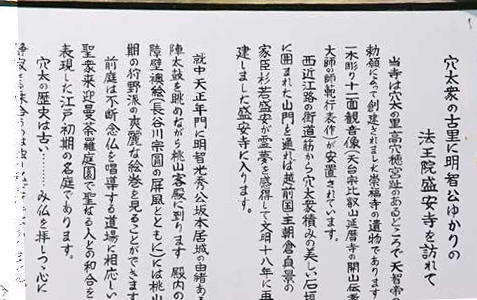 穴太衆の古里に明智公ゆかりの
法王院盛安寺を訪れて
当寺は穴太の里高穴穂宮趾のあるところで天智帝
勅願によって創建されました崇福寺の遺物であります
一木彫り十一面観音像(天台宗比叡山延暦寺の開山伝教
大師の師範行表作)が安置されています
西近江路の街道筋から穴太衆積みの美しい石垣
に囲まれた山門を通れば越前国主朝倉貞景の
家臣杉若盛安が霊夢を感得て文明十八年に再
建しました盛安寺に入ります。
就中天正年間に明智光秀公坂本居城の由緒ある
陣太鼓を眺めながら桃山客殿に到ります 殿内の
障壁襖絵(長谷川宗圓の屏風とともに)には桃山
期の狩野派の爽麗な絵巻を見ることができます
前庭は不断念仏を唱導する道場に相応しい
聖衆来迎曼荼羅庭園で聖なる人との和合を
表現した江戸初期の名庭であります。
穴太の歴史は古い……み仏を拝しつ心に